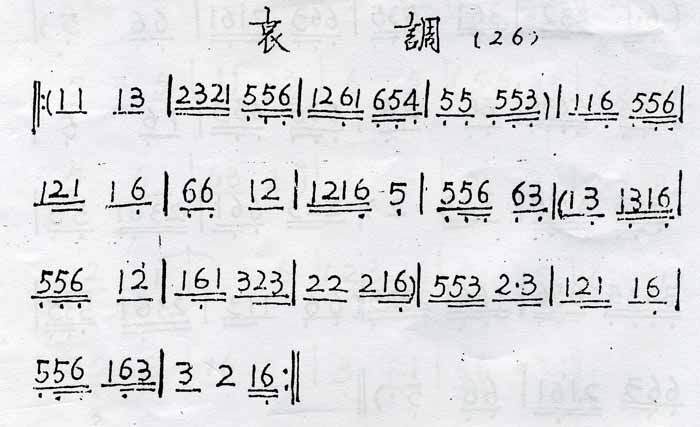 哀 調 (26)
‖:(11 13|2321 556|1261 654|55 553)|116 556|
121 16|66 12|1216 5|556 63|(13 1316|
556 12|161 323|22 216)|553 2·3|121 16|
556 163|3 2 16:‖